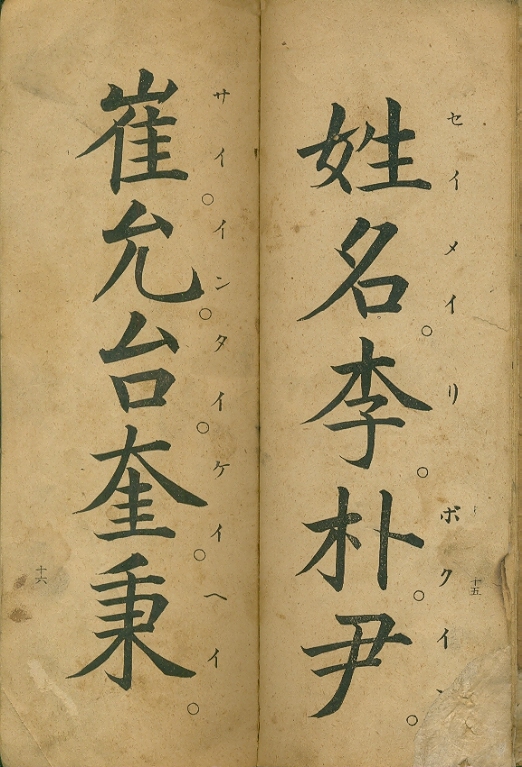 姓名。李。朴。尹。
セイメイ。リ。ボクイン。
十五
崔。允。台。奎。秉。
サイ。イン。タイ。ケイ。ヘイ。
十六